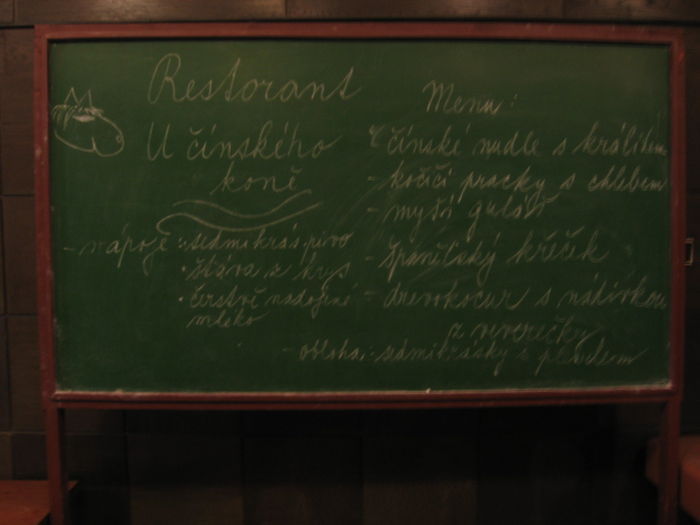 Restorant
U čínského
koně
- nápoje: sedmikrás pivo
• štáva z krys
• čerstvě nadojené
mléko
Menu:
čínské nudle s králíkem
- kočičí pracky s chlebem
- myší guláš
- španělský křeček
- drevokocur s nádivkou
z veverečky
- obloha: sedmikrásky s